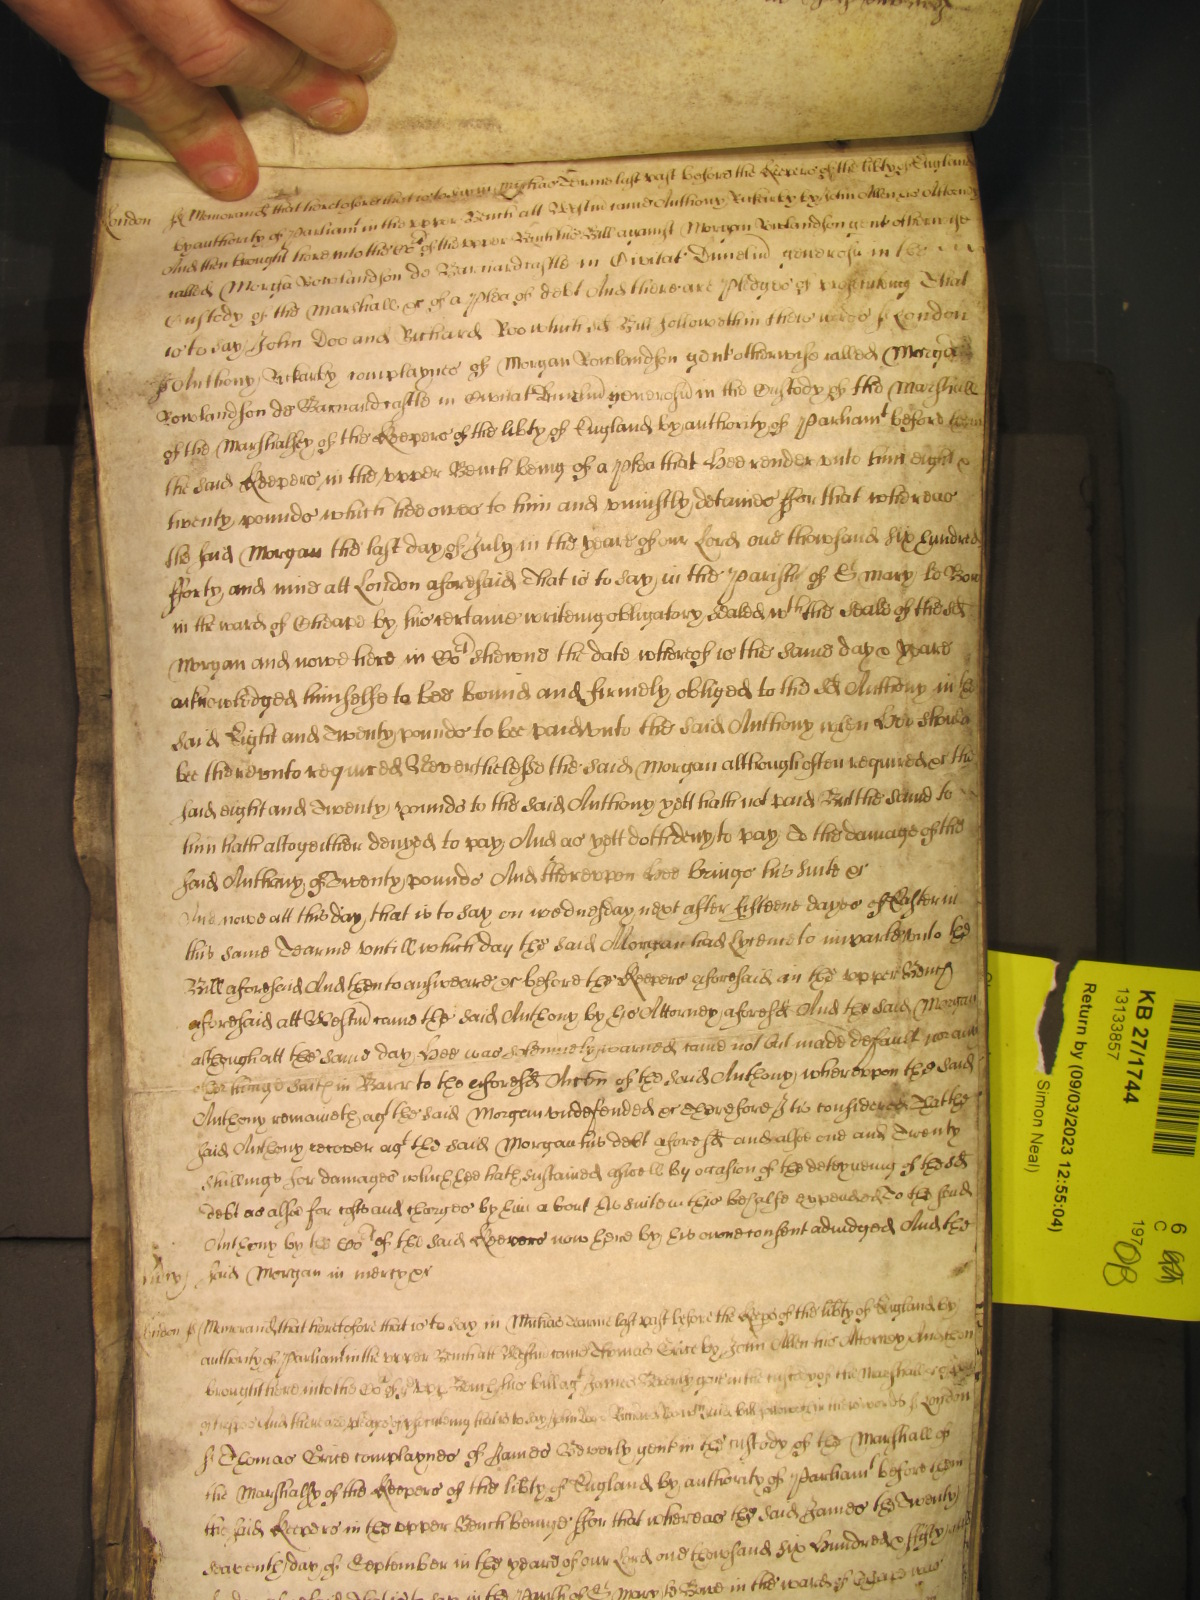 London ss Memorand that heretofore that is to say in Michas Terme last past before the Keepers of the libty of England
by authority of Parliamt in the upper Bench att Westm came Anthony Rickarby by John Allen his Attorney
And then brought here into the Cot of the upper Bench his Bill against Morgan Rowlandson gent otherwise
called Morgan Rowlandson de Barnardcastle in Civitat Dunelm generosu in the
Custody of the Marshall &c of a Plea of debt And there are Pledges of prosecuting That
is to say John Doo and Richard Roo which sd Bill followeth in theis words ss London
ss Anthony Rickarby complaynes of Morgan Rowlandson gent otherwise called Morgan
Rowlandson de Barnardcastle in Civitat Dunelm generosu in the Custody of the Marshall
of the Marshalsey of the Keepers of the libty of England by authority of Parliamt before them
the said Keepers in the upper Bench being of a Plea that Hee render unto him eight &
twenty pounds which hee owes to him and uniustly detaines ffor that whereas
the said Morgan the last day of July in the yeare of our Lord one thowsand six hundred
fforty and nine att London aforesaid That is to say in the Parish of St Mary le Bow
in the ward of Cheape by his certaine writeing obligatory sealed wth the Seale of the sd
Morgan and nowe here in Cot shewne the date whereof is the same day & yeare
acknowledged himselfe to bee bound and firmely obliged to the sd Anthony in the
said Eight and Twenty pounds to bee paid unto the said Anthony when hee should
bee thereunto required Neverthelesse the said Morgan although often required &c the
said eight and Twenty pounds to the said Anthony yett hath not paid But the same to
him hath altogeither denyed to pay And as yett doth deny to pay To the damage of the
said Anthony of Twenty pounds And thereupon hee brings his suite &c
And nowe att this day that is to say on wednesday next after fifteene dayes of Easter in
this same Tearme untill which day the said Morgan had Lycence to imparle unto the
Bill aforesaid And then to answeare &c before the Keepers aforesaid in the upper Bench
aforesaid att Westm came the said Anthony by his Attorney aforesd And the said Morgan
although att the same day Hee was solemnely warned came not but made default nor any
thinge saith in Barr to the aforesd Accon of the said Anthony whereupon the said
Anthony remaineth agt the said Morgan undefended &c Therefore It is considered That the
said Anthony recover agt the said Morgan his debt aforesd and alsoe one and Twenty
shillings for damages which hee hath sustained aswell by occasion of the deteyneing of the sd
debt as alsoe for costs and charges by him about his suite in this behalfe expended To the said
Anthony by the Cot of the said Keepers now here by his owne consent adiudged And the
said Morgan in mercy &c
Mercy
London ss Memorand that heretofore that is to say in Michas Tearme last past before the Keeps of the libty of England by
authority of Parliamt in the upper Bench att Westm came Thomas Grice by John Allen his Attorney And then
brought here into the Cot of the Upp Bench his bill agt James Beverly gent in the custody of the Marshall
And there are pledges of prosecuting that is to say John Doo Richard Roo wch said bill followeth in theis words ss London
ss Thomas Grice complaynes of James Beverly gent in the custody of the Marshall of
the Marshallsy of the Keepers of the libty of England by authority of Parliamt before them
the said Keepers in the upper Bench beinge ffor that whereas the said James the Twenty
seaventh day of September in the yeare of our Lord one thowsand six Hundred & fifty
in the Parish of St Mary le Bowe in the ward of Cheape
KB 27/1744
13133857
Return by (09/03/2023 12:55:04)
Simon Neal)
6
C
197